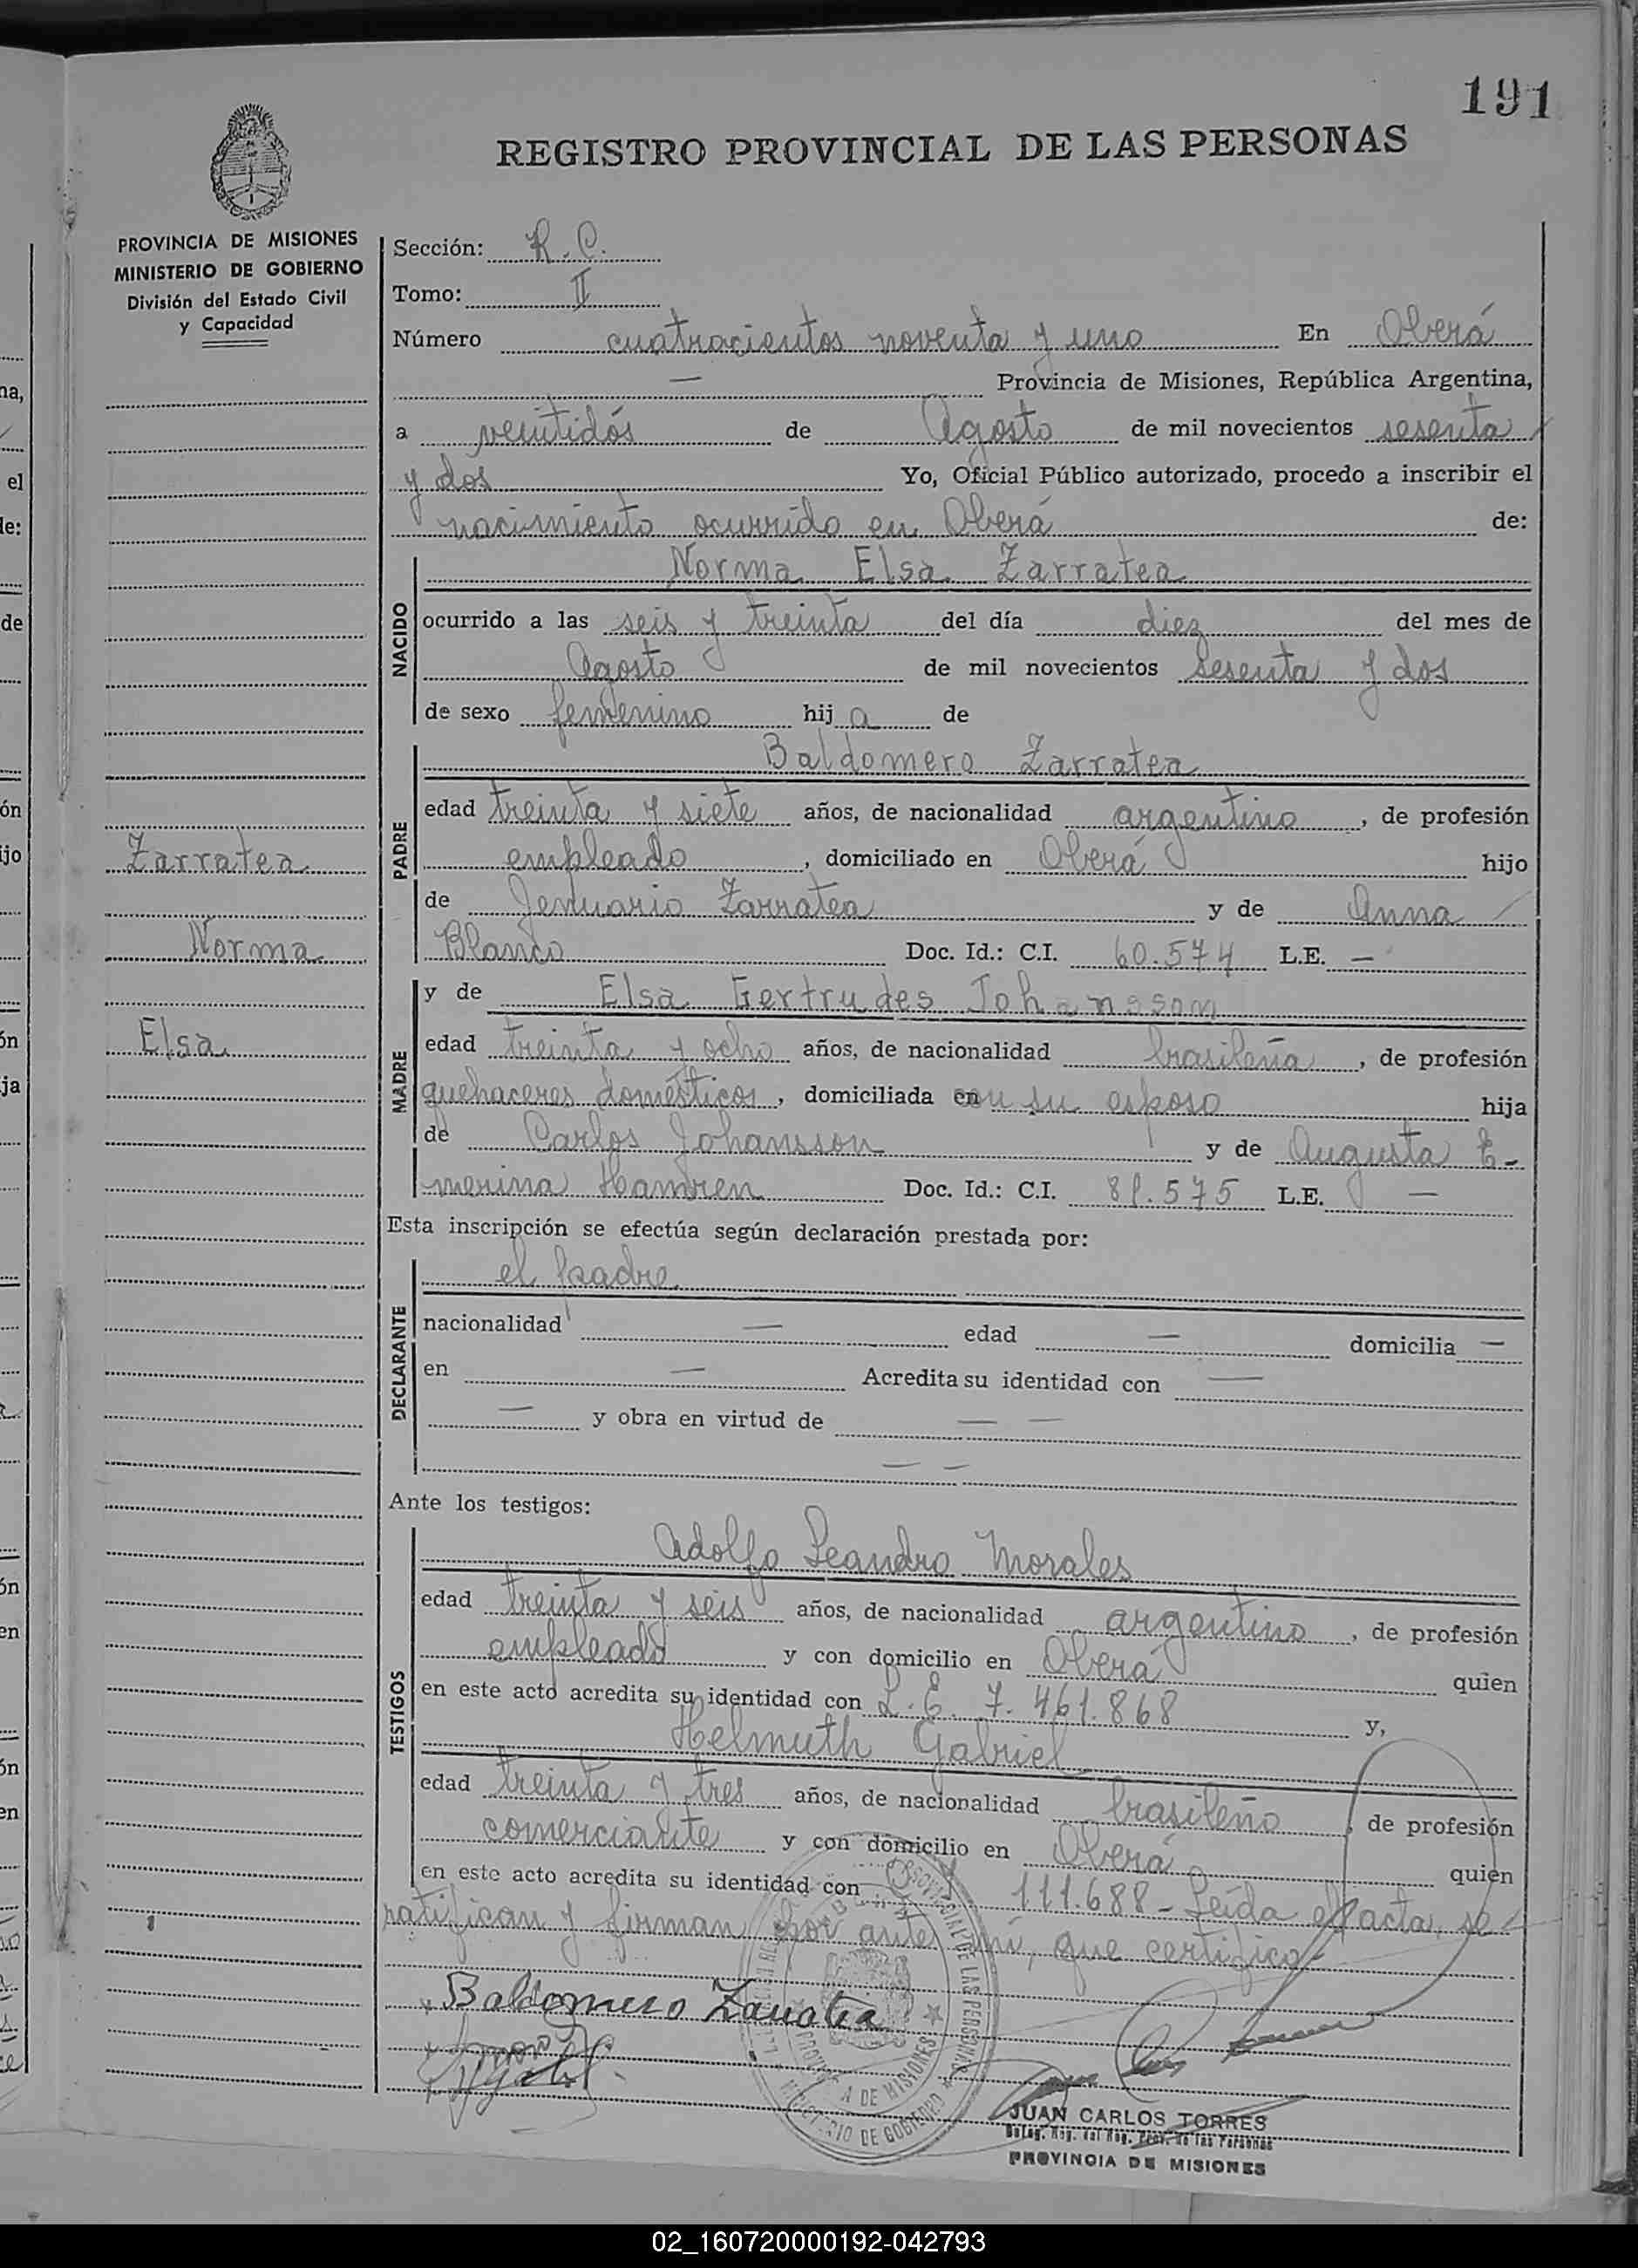 191
REGISTRO PROVINCIAL DE LAS PERSONAS
PROVINCIA DE MISIONES
MINISTERIO DE GOBIERNO
División del Estado Civil
y Capacidad
Sección: R.C.
Tomo: II
Número cuatrocientos noventa y uno En Oberá
— Provincia de Misiones, República Argentina,
a veintidós de Agosto de mil novecientos sesenta
y dos Yo, Oficial Público autorizado, procedo a inscribir el
nacimiento ocurrido en Oberá de:
NACIDO
Norma Elsa Zarratea
ocurrido a las seis y treinta del día diez del mes de
Agosto de mil novecientos sesenta y dos
de sexo femenino hij a de
PADRE
Baldomero Zarratea
edad treinta y siete años, de nacionalidad argentino, de profesión
empleado, domiciliado en Oberá hijo
de Jenuario Zarratea y de Anna
Blanco Doc. Id.: C.I. 60.574 L.E. —
Zarratea
Norma
Elsa
MADRE
y de Elsa Gertrudes Johansson
edad treinta y ocho años, de nacionalidad brasileña, de profesión
quehaceres domésticos, domiciliada en con su esposo hija
de Carlos Johansson y de Augusta E-
merina Hamren Doc. Id.: C.I. 81.575 L.E. —
Esta inscripción se efectúa según declaración prestada por:
DECLARANTE
el padre
nacionalidad — edad — domicilia —
en — Acredita su identidad con —
— y obra en virtud de — —
— —
Ante los testigos:
TESTIGOS
Adolfo Leandro Morales
edad treinta y seis años, de nacionalidad argentino, de profesión
empleado y con domicilio en Oberá quien
en este acto acredita su identidad con L.E. 7.461.868 y,
Helmuth Gabriel
edad treinta y tres años, de nacionalidad brasileño, de profesión
comerciante y con domicilio en Oberá quien
en este acto acredita su identidad con 111.688 - Leída el acta, se
ratifican y firman por ante mí, que certifico-
Baldomero Zarratea
JUAN CARLOS TORRES
PROVINCIA DE MISIONES
02_160720000192-042793